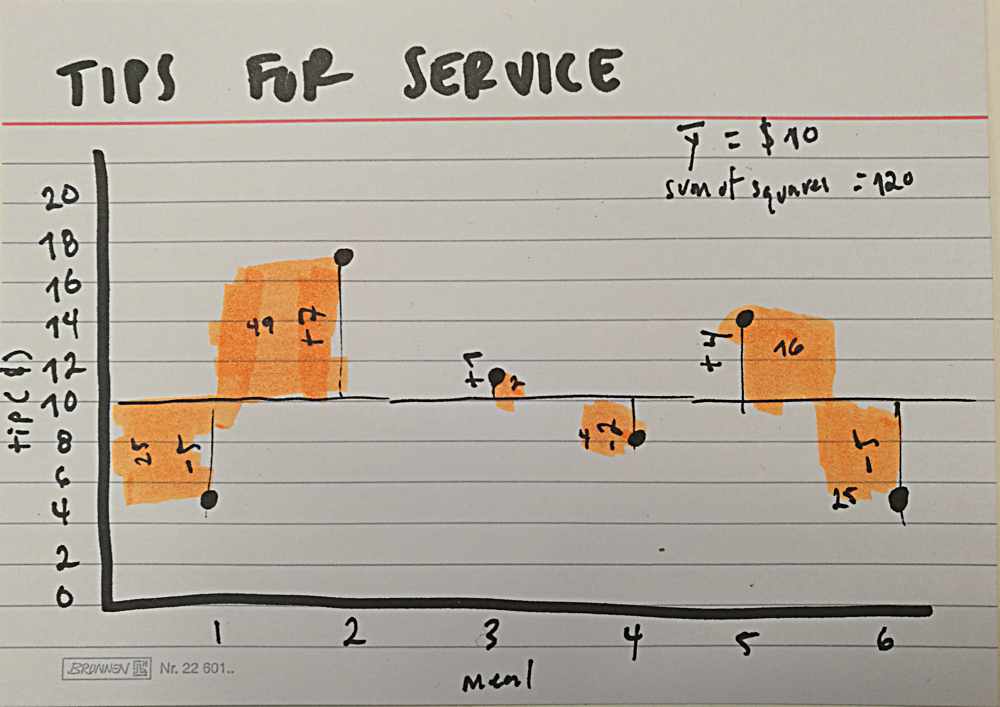 TIPS FOR SERVICE
ȳ = $10
sum of squares = 120
20
18
16
14
12
10
8
6
4
2
0
tip ($)
25
-5
49
+7
+1
2
4
-2
+4
16
25
-5
1 2 3 4 5 6
meal
BRUNNEN Nr. 22 601..